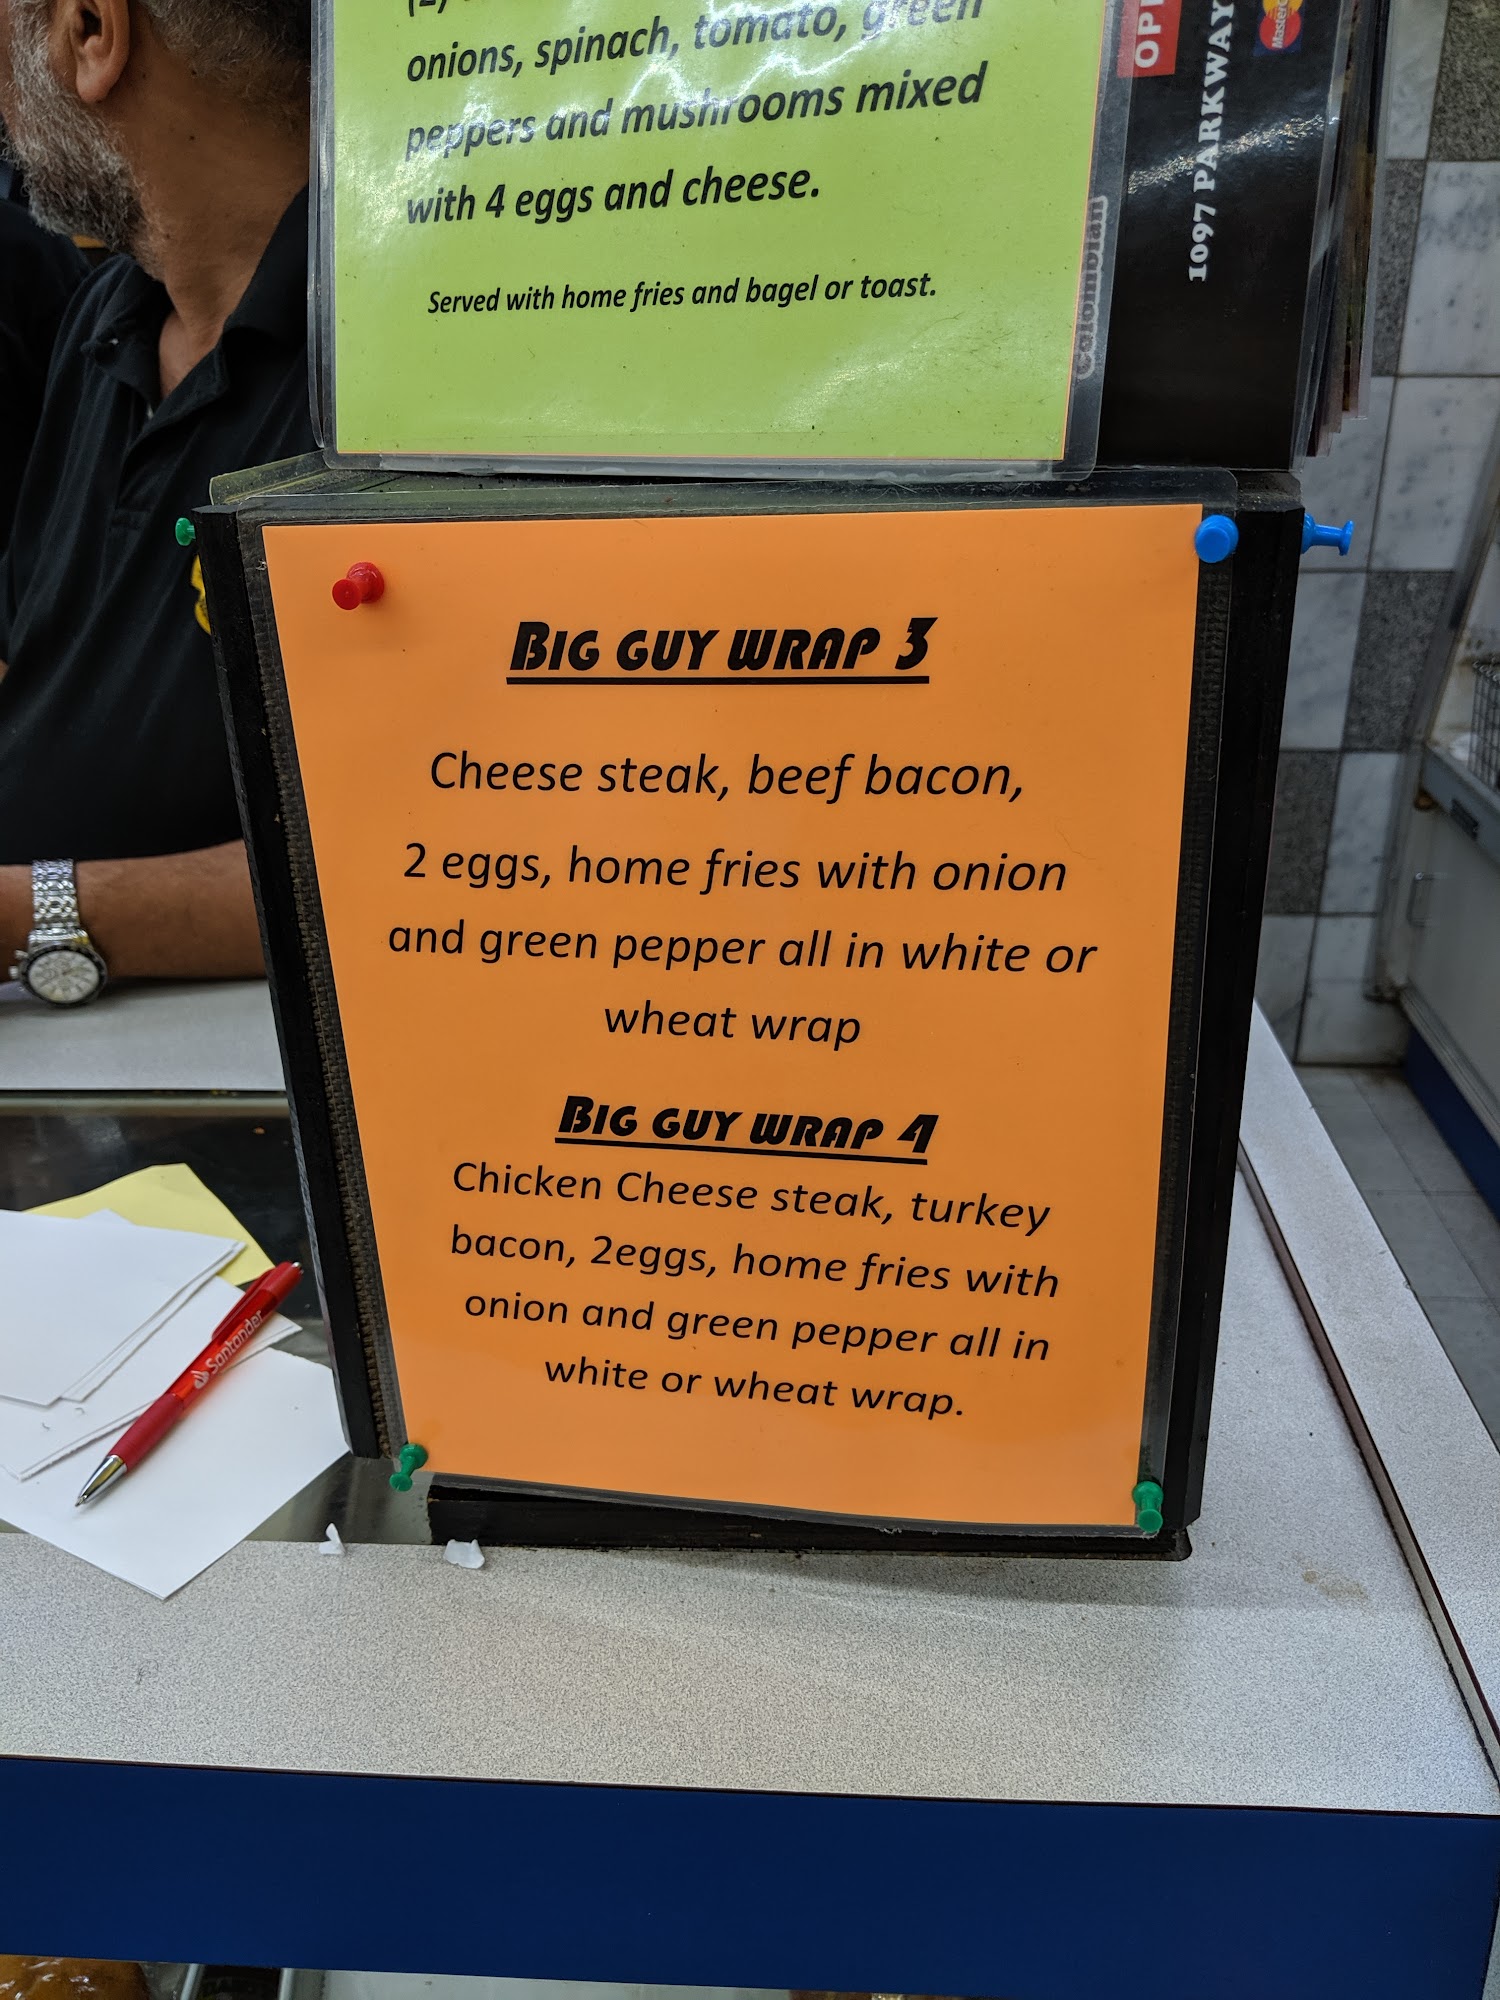 onions, spinach, tomato, green
peppers and mushrooms mixed
with 4 eggs and cheese.
Served with home fries and bagel or toast.
1097 PARKWAY
Colombian
BIG GUY WRAP 3
Cheese steak, beef bacon,
2 eggs, home fries with onion
and green pepper all in white or
wheat wrap
BIG GUY WRAP 4
Chicken Cheese steak, turkey
bacon, 2eggs, home fries with
onion and green pepper all in
white or wheat wrap.
Santander